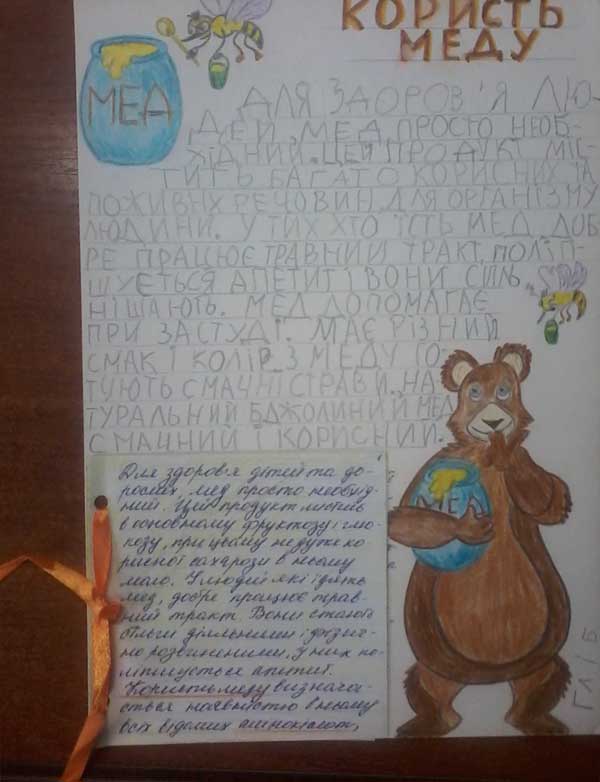 КОРИСТЬ
МЕДУ
МЕД
ДЛЯ ЗДОРОВ'Я ЛЮ-
ДЕЙ, МЕД ПРОСТО НЕОБ-
ХІДНИЙ. ЦЕЙ ПРОДУКТ МІС-
ТИТЬ БАГАТО КОРИСНИХ ТА
ПОЖИВНХ РЕЧОВИН ДЛЯ ОРГАНІЗМУ
ЛЮДИНИ. У ТИХ ХТО ЇСТЬ МЕД, ДОБ-
РЕ ПРАЦЮЄ ТРАВНИЙ ТРАКТ, ПОЛІП-
ШУЄТЬСЯ АПЕТИТ І ВОНИ СИЛЬ
НІШАЮТЬ. МЕД ДОПОМАГАЄ
ПРИ ЗАСТУДІ. МАЄ РІЗНИЙ
СМАК І КОЛІР. З МЕДУ ГО
ТУЮТЬ СМАЧНІ СТРАВИ. НА
ТУРАЛЬНИЙ БДЖОЛИНИЙ МЕД
СМАЧНИЙ І КОРИСНИЙ.
МЕД
Для здоров'я дітей та до-
рослих, мед просто необхід-
ний. Цей продукт містить
в основному фруктозу і глю-
козу, при цьому не дуже ко-
рисної сахарози в ньому
мало. У людей які їдять
мед, добре працює трав-
ний тракт. Вони стають
більш діяльними і фізич-
но розвиненими, у них по-
ліпшується апетит.
Користь меду визнача-
ється наявністю в ньому
всіх відомих амінокислот,
ГЛІБ